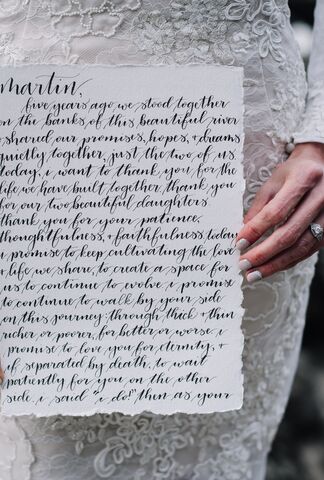 martin,
five years ago we stood together
on the banks of this beautiful river
shared our promises, hopes, + dreams
quietly together, just the two of us
today, i want to thank you for the
life we have built together, thank you
for our two beautiful daughters
thank you for your patience,
thoughtfulness, + faithfulness, today
i promise to keep cultivating the love
+ life we share, to create a space for
us to continue to evolve, i promise
to continue to walk by your side
on this journey: through thick + thin
richer, or poorer, for better, or worse, i
promise to love you for eternity, +
if separated by death, to wait
patiently for you on the other
side. i said "i do!" then as your